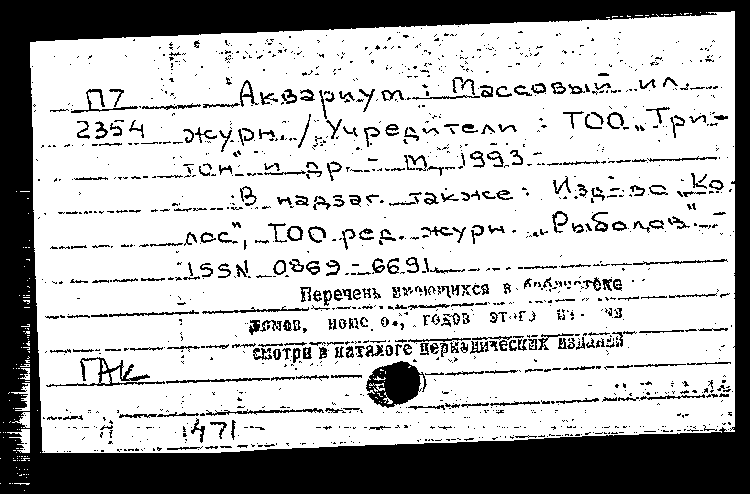 П7 Аквариум: Массовый ил.
2354 журн. / Учредители: ТОО „Три-
тон" и др. - М, 1993 -
В надзаг. также: Изд-во „Ко-
лос", ТОО ред. журн. „Рыболов". -
ISSN 0869-6691.
Перечень имеющихся в библиотеке
томов, номеров, годов этого издания
смотри в каталоге периодических изданий
ГАК
1471